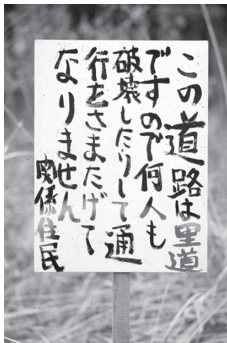 この道路は里道
ですので何人も
破壊したりして通
行をさまたげて
なりません
関係住民